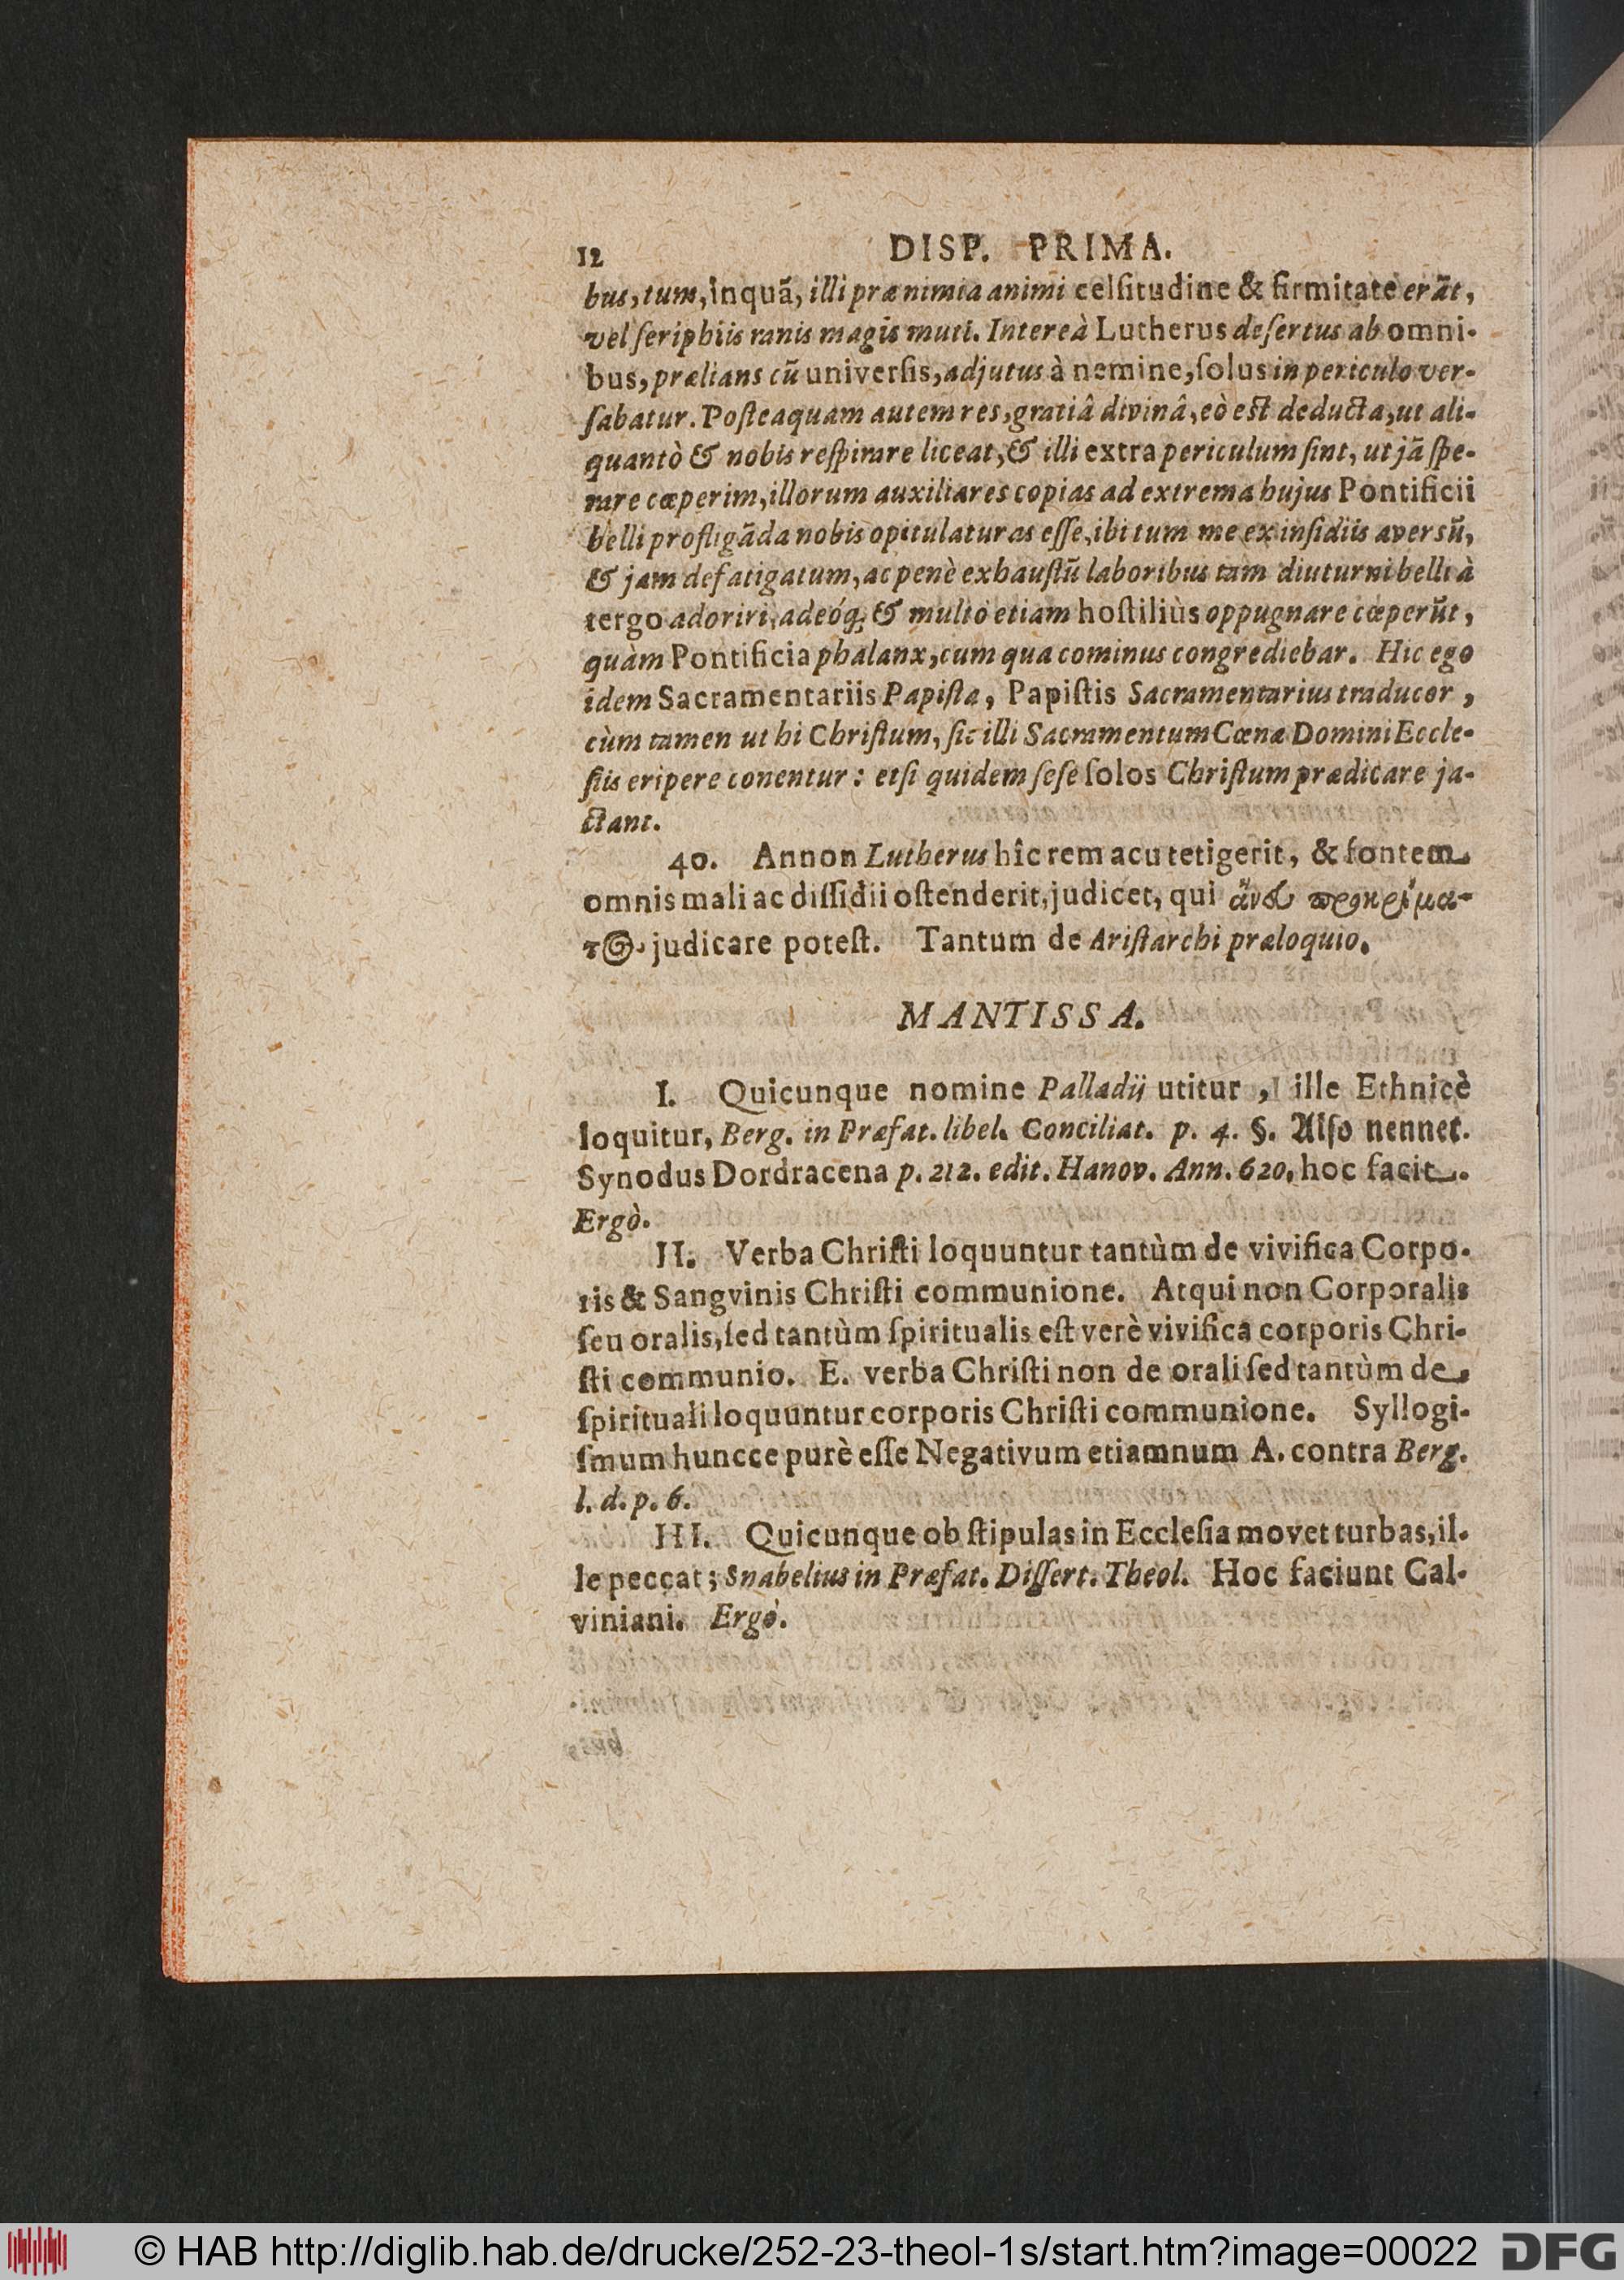 12 DISP. PRIMA.
bus, tum, inquā, illi præ nimia animi celſitudine & firmitate erāt,
vel ſeriphiis ranis magis muti. Intereà Lutherus deſertus ab omni-
bus, prælians cū univerſis, adjutus à nemine, ſolus in periculo ver-
ſabatur. Poſteaquam autem res, gratiâ divinâ, eò eſt deducta, ut ali-
quantò & nobis reſpirare liceat, & illi extra periculum ſint, ut jā ſpe-
rare cœperim, illorum auxiliares copias ad extrema hujus Pontificii
belli profligāda nobis opitulaturas eſſe, ibi tum me ex inſidiis averſū,
& jam defatigatum, ac penè exhauſtū laboribus tam diuturni belli à
tergo adoriri, adeóq; & multò etiam hoſtiliùs oppugnare cœperūt,
quàm Pontificia phalanx, cum qua cominus congrediebar. Hic ego
idem Sacramentariis Papiſta, Papiſtis Sacramentarius traducor,
cùm tamen ut hi Chriſtum, ſic illi Sacramentum Cœnæ Domini Eccle-
ſiis eripere conentur: etſi quidem ſeſe ſolos Chriſtum prædicare ja-
ctant.
40. Annon Lutherus hîc rem acu tetigerit, & fontem
omnis mali ac diſſidii oſtenderit, judicet, qui ἄνευ προκρίμα-
τος judicare poteſt. Tantum de Ariſtarchi præloquio.
MANTISSA.
I. Quicunque nomine Palladij utitur, ille Ethnicè
loquitur, Berg. in Præfat. libel. Conciliat. p. 4. §. Alſo nennet.
Synodus Dordracena p. 212. edit. Hanov. Ann. 620, hoc facit.
Ergò.
II. Verba Chriſti loquuntur tantùm de vivifica Corpo-
ris & Sangvinis Chriſti communione. Atqui non Corporalis
ſeu oralis, ſed tantùm ſpiritualis eſt verè vivifica corporis Chri-
ſti communio. E. verba Chriſti non de orali ſed tantùm de
ſpirituali loquuntur corporis Chriſti communione. Syllogi-
ſmum huncce purè eſſe Negativum etiamnum A. contra Berg.
l. d. p. 6.
III. Quicunque ob ſtipulas in Eccleſia movet turbas, il-
le peccat; Snabelius in Præfat. Diſſert. Theol. Hoc faciunt Cal-
viniani. Ergò.
© HAB http://diglib.hab.de/drucke/252-23-theol-1s/start.htm?image=00022
DFG